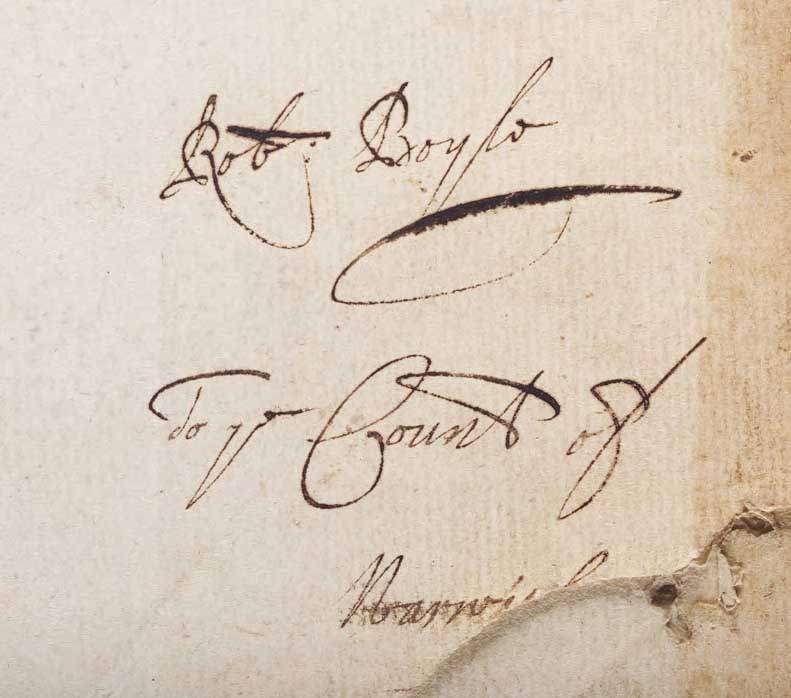 Robt. Boyle
To ye Count of
Warwick